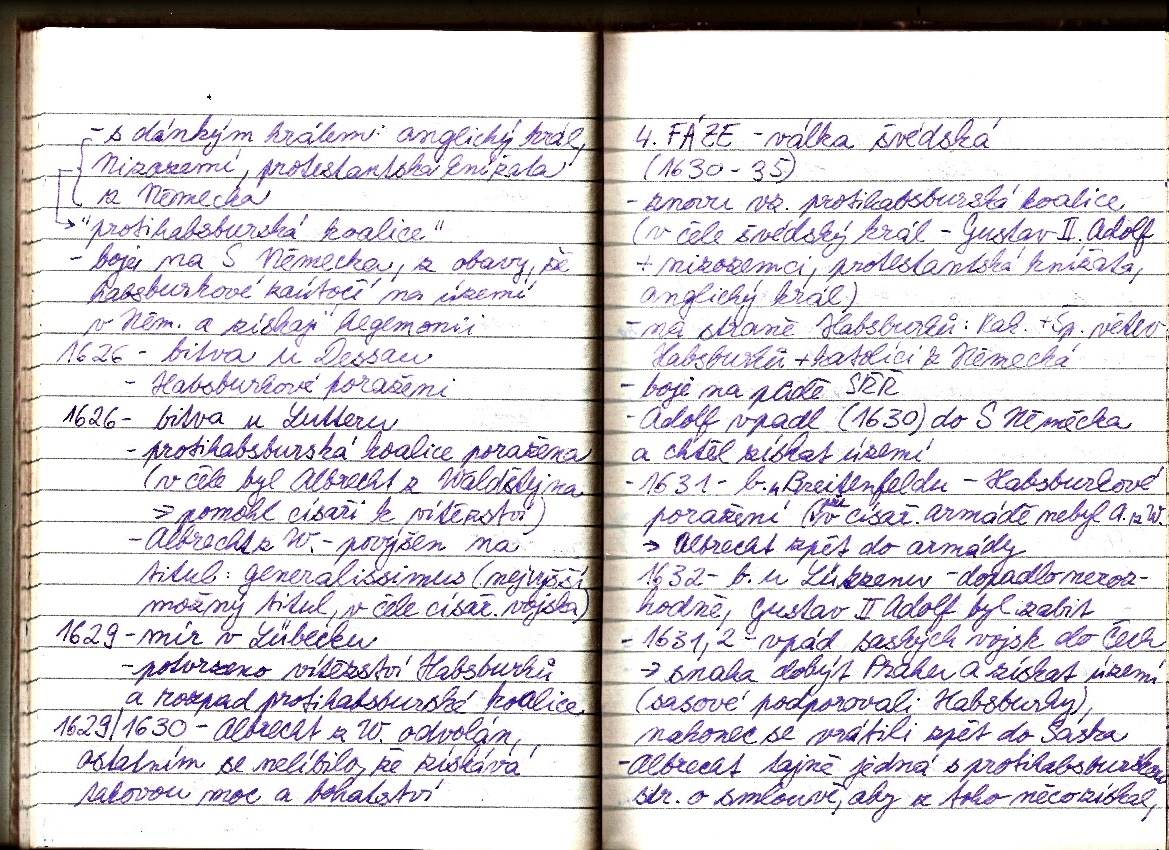 - s dánkým králem: anglický král,
Nizozemí, protestantská knížata
z Německa
"protihabsburská koalice"
- boje na S Německa, z obavy, že
habsburkové zaútočí na území
v Něm. a získají hegemonii
1626 - bitva u Dessau
- Habsburkové poraženi
1626 - bitva u Lutteru
- protihabsburská koalice poražena
(v čele byl Albrecht z Waldštejna
→ pomohl císaři k vítězství)
- Albrecht z W. - povýšen na
titul: generalissimus (nejvyšší
možný titul, v čele císař. vojska)
1629 - mír v Lübecku
- potvrzeno vítězství Habsburků
a rozpad protihabsburské koalice
1629/1630 - Albrecht z W. odvolán,
ostatním se nelíbilo, že získává
takovou moc a bohatství
4. FÁZE - válka švédská
(1630 - 35)
- znovu vz. protihabsburská koalice
(v čele švédský král - Gustav II. Adolf
+ nizozemci, protestantská knížata,
anglický král)
- na straně Habsburků: Rak. + Šp. větev
Habsburků + katolíci z Německá
- boje na půdě SŘŘ
- Adolf vpadl (1630) do S Německa
a chtěl získat území
- 1631 - b. u Breitenfeldu - Habsburkové
poraženi (v císař. armádě nebyl A. z W.
→ Albrecht zpět do armády
1632 - b. u Lützenu - dopadlo neroz-
hodně, Gustav II Adolf byl zabit
- 1631, 2 - vpád saských vojsk do Čech
→ snaha dobýt Prahu a získat území
(sasové podporovali Habsburky),
nakonec se vrátili zpět do Saska
- Albrecht tajně jedná s protihabsburskou
str. o smlouvě, aby z toho něco získal,